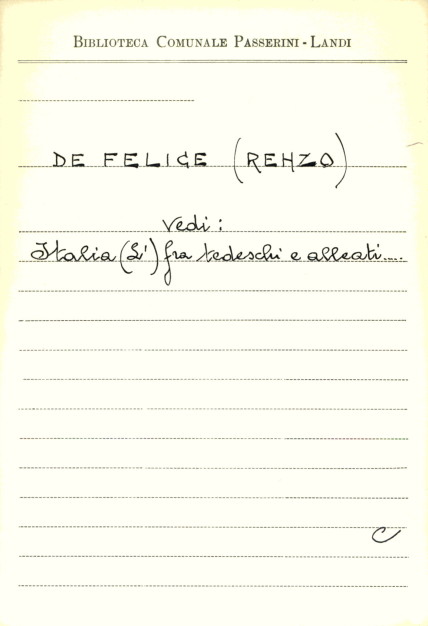 BIBLIOTECA COMUNALE PASSERINI - LANDI
DE FELICE (RENZO)
Vedi :
Italia (L') fra tedeschi e alleati....
C